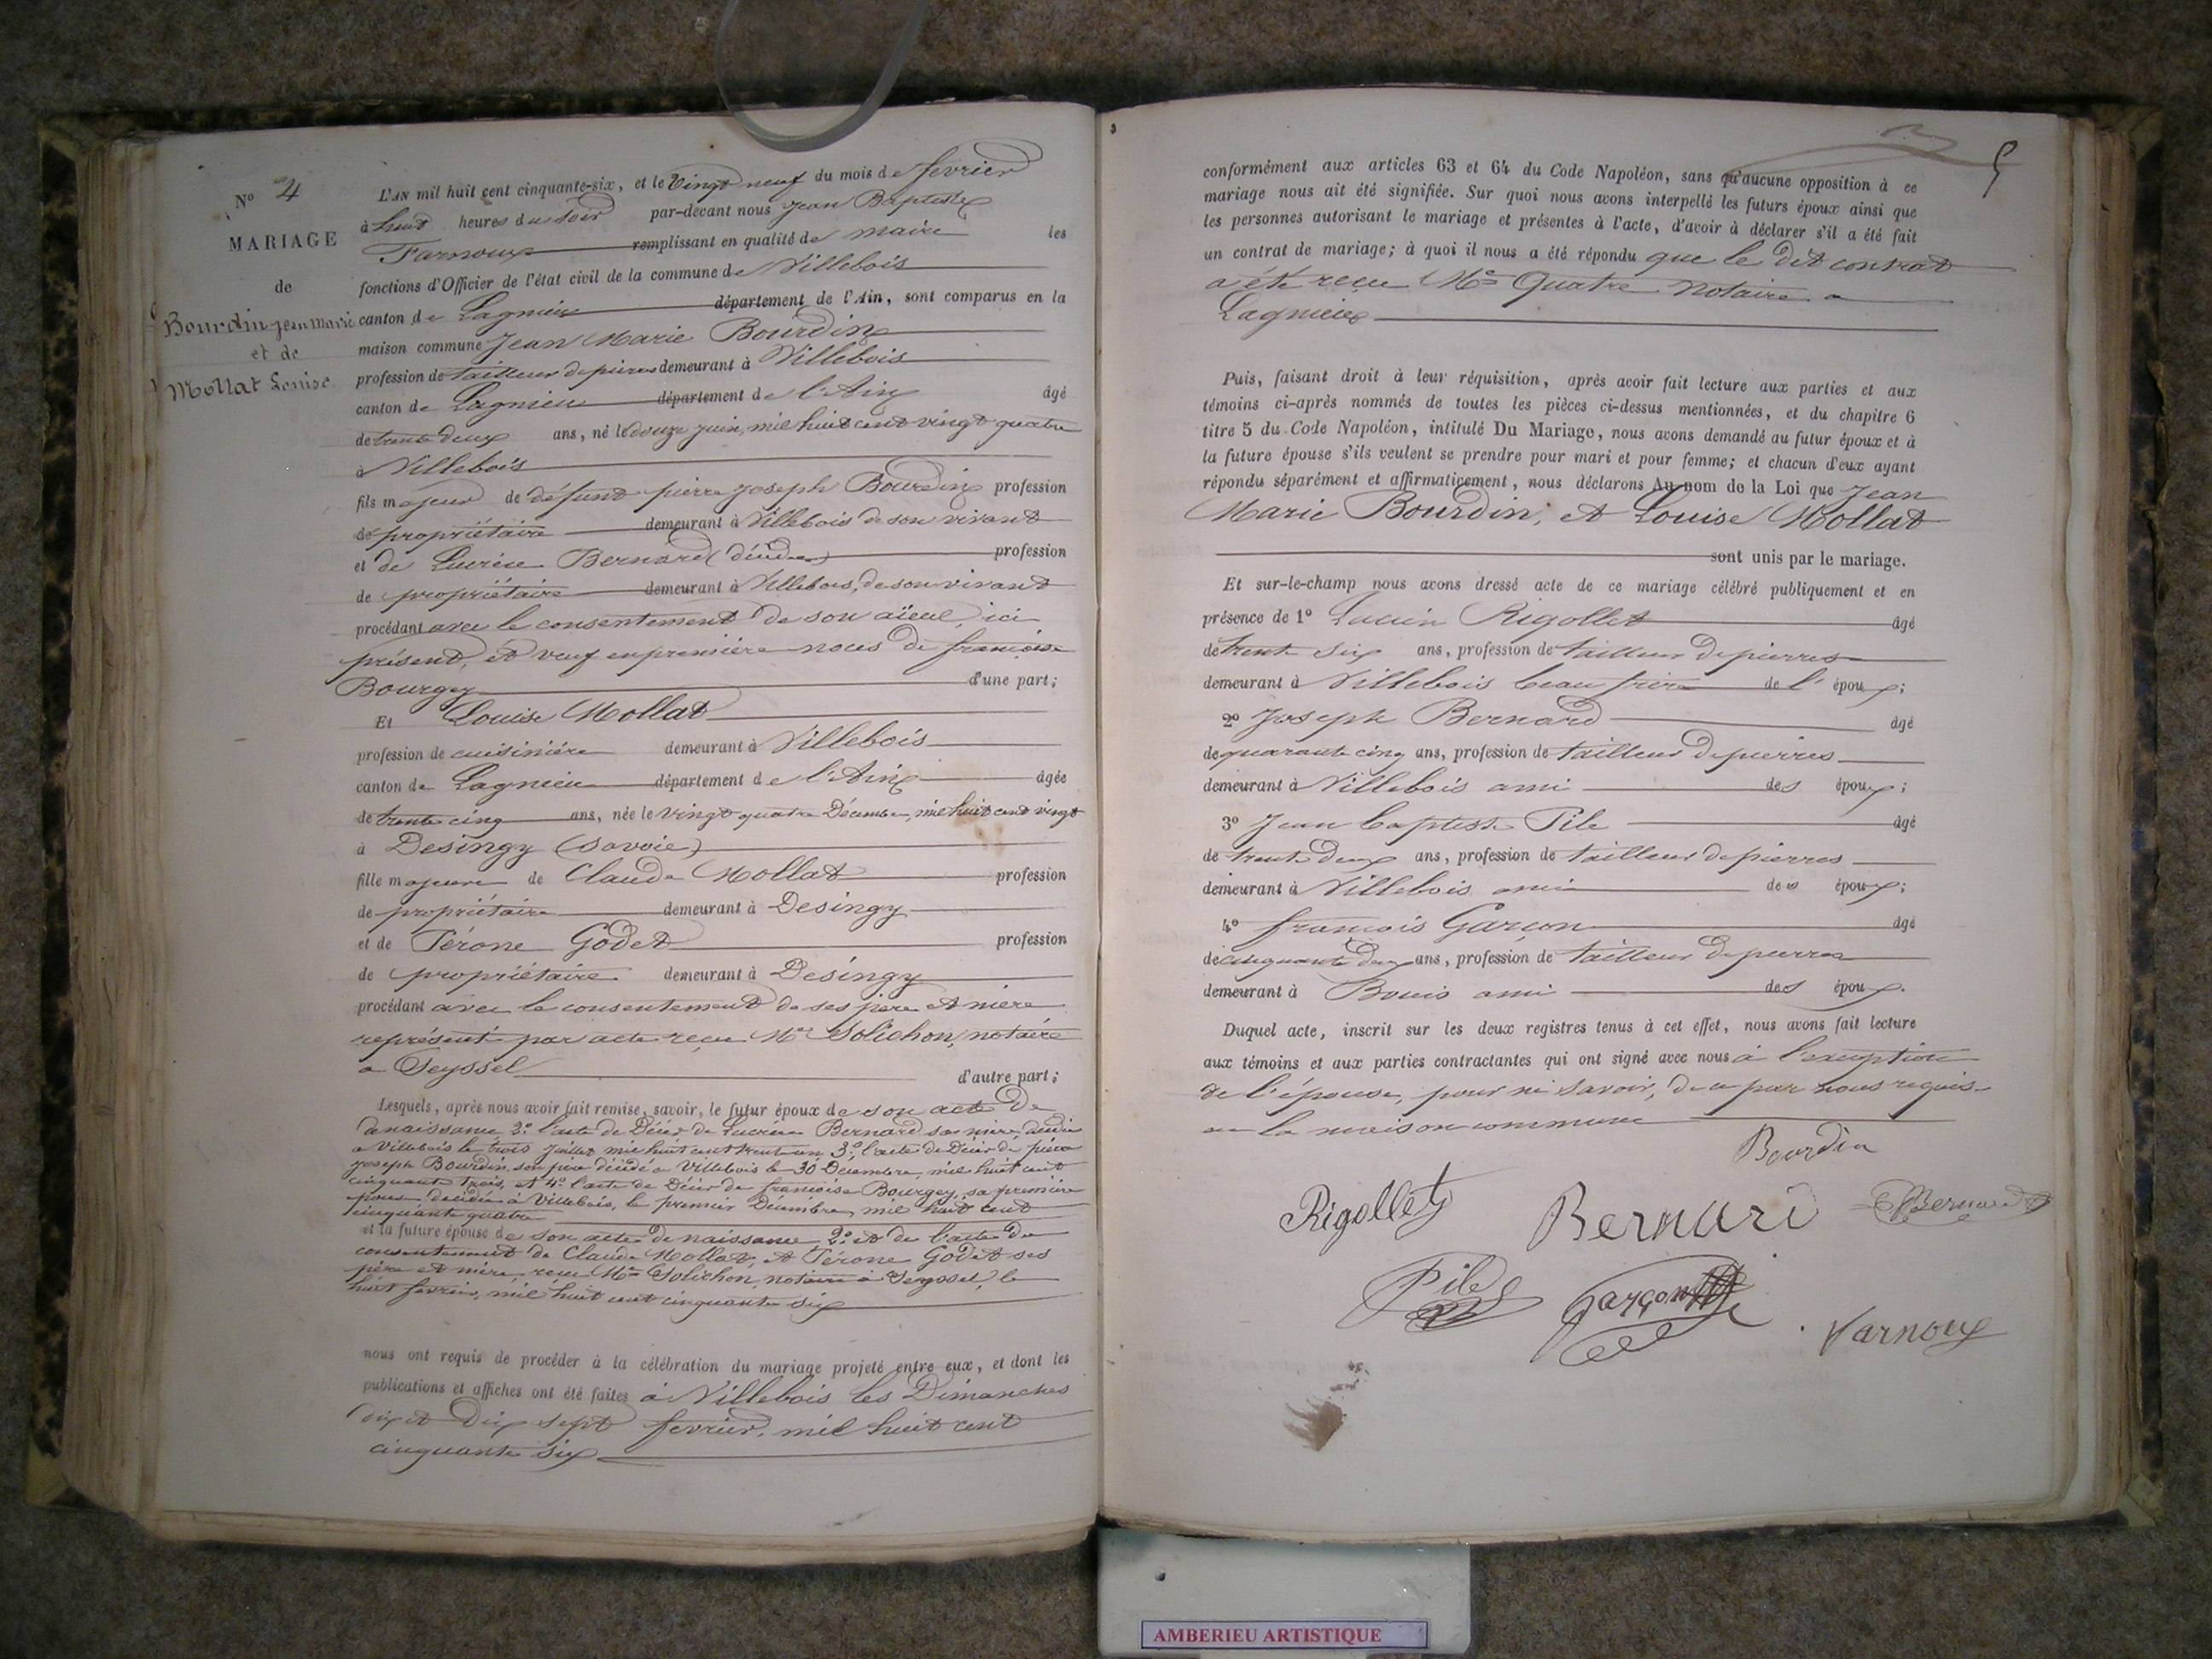 Nº 4
MARIAGE
de
Bourdin Jean Marie
et de
Mollat Louise
L'AN mil huit cent cinquante-six, et le Vingt neuf du mois de fevrier
à huit heures du soir par-devant nous Jean Baptiste
Farnoux remplissant en qualité de maire les
fonctions d'Officier de l'état civil de la commune de Villebois
canton de Lagnieu département de l'Ain, sont comparus en la
maison commune Jean Marie Bourdin
profession de tailleur de pierres demeurant à Villebois
canton de Lagnieu département de l'Ain âgé
de trente deux ans, né le douze juin, mil huit cent vingt quatre
à Villebois
fils majeur de défunt pierre joseph Bourdin profession
de propriétaire demeurant à Villebois de son vivant
et de Lucrèce Bernard (décédée) profession
de propriétaire demeurant à Villebois, de son vivant
procédant avec le consentement de son aïeul, ici
présent, et veuf en première noces de françoise
Bourgey d'une part;
Et Louise Mollat
profession de cuisinière demeurant à Villebois
canton de Lagnieu département de l'Ain âgée
de trente cinq ans, née le vingt quatre Décembre, mil huit cent vingt
à Desingy (Savoie)
fille majeure de Claude Mollat profession
de propriétaire demeurant à Desingy
et de Térone Godet profession
de propriétaire demeurant à Desingy
procédant avec le consentement de ses père et mère
représenté par acte reçu Me Solichon, notaire
a Seyssel d'autre part;
Lesquels, après nous avoir fait remise, savoir, le futur époux de son acte de
naissance 2º l'acte de Décès de Lucrèce Bernard sa mère décédée
a Villebois le trois juillet mil huit cent trente un 3º l'acte de Décès de pierre
joseph Bourdin, son père décédé a Villebois le 30 Décembre, mil huit cent
cinquante trois, et 4º l'acte de Décès de françoise Bourgey, sa première
décédée à Villebois, le premier Décembre, mil huit cent
cinquante quatre
et la future épouse de son acte de naissance 2º et de l'acte de
consentement de Claude Mollat, et Térone Godet ses
père et mère, reçu Me Solichon, notaire à Seyssel, le
huit fevrier, mil huit cent cinquante six
nous ont requis de procéder à la célébration du mariage projeté entre eux, et dont les
publications et affiches ont été faites à Villebois les Dimanches
dix et dix sept fevrier, mil huit cent
cinquante six
5
conformément aux articles 63 et 64 du Code Napoléon, sans qu'aucune opposition à ce
mariage nous ait été signifiée. Sur quoi nous avons interpellé les futurs époux ainsi que
les personnes autorisant le mariage et présentes à l'acte, d'avoir à déclarer s'il a été fait
un contrat de mariage; à quoi il nous a été répondu que le dit contrat
a été reçu Me Quatre Notaire a
Lagnieu
Puis, faisant droit à leur réquisition, après avoir fait lecture aux parties et aux
témoins ci-après nommés de toutes les pièces ci-dessus mentionnées, et du chapitre 6
titre 5 du Code Napoléon, intitulé Du Mariage, nous avons demandé au futur époux et à
la future épouse s'ils veulent se prendre pour mari et pour femme; et chacun d'eux ayant
répondu séparément et affirmativement, nous déclarons Au nom de la Loi que Jean
Marie Bourdin, et Louise Mollat
sont unis par le mariage.
Et sur-le-champ nous avons dressé acte de ce mariage célébré publiquement et en
présence de 1º Lucien Rigollet âgé
de trente six ans, profession de tailleur de pierres
demeurant à Villebois beau frère de l' époux;
2º Joseph Bernard âgé
de quarante cinq ans, profession de tailleur de pierres
demeurant à Villebois ami des époux;
3º Jean baptiste Pile âgé
de trente deux ans, profession de tailleur de pierres
demeurant à Villebois ami des époux;
4º françois Garçon âgé
de cinquante deux ans, profession de tailleur de pierres
demeurant à Bouis ami des époux.
Duquel acte, inscrit sur les deux registres tenus à cet effet, nous avons fait lecture
aux témoins et aux parties contractantes qui ont signé avec nous à l'exception
de l'épouse, pour ne savoir, de ce par nous requis
en la maison commune
Bourdin
Rigollet Bernard Bernard
Pile Garçon Farnoux
AMBERIEU ARTISTIQUE